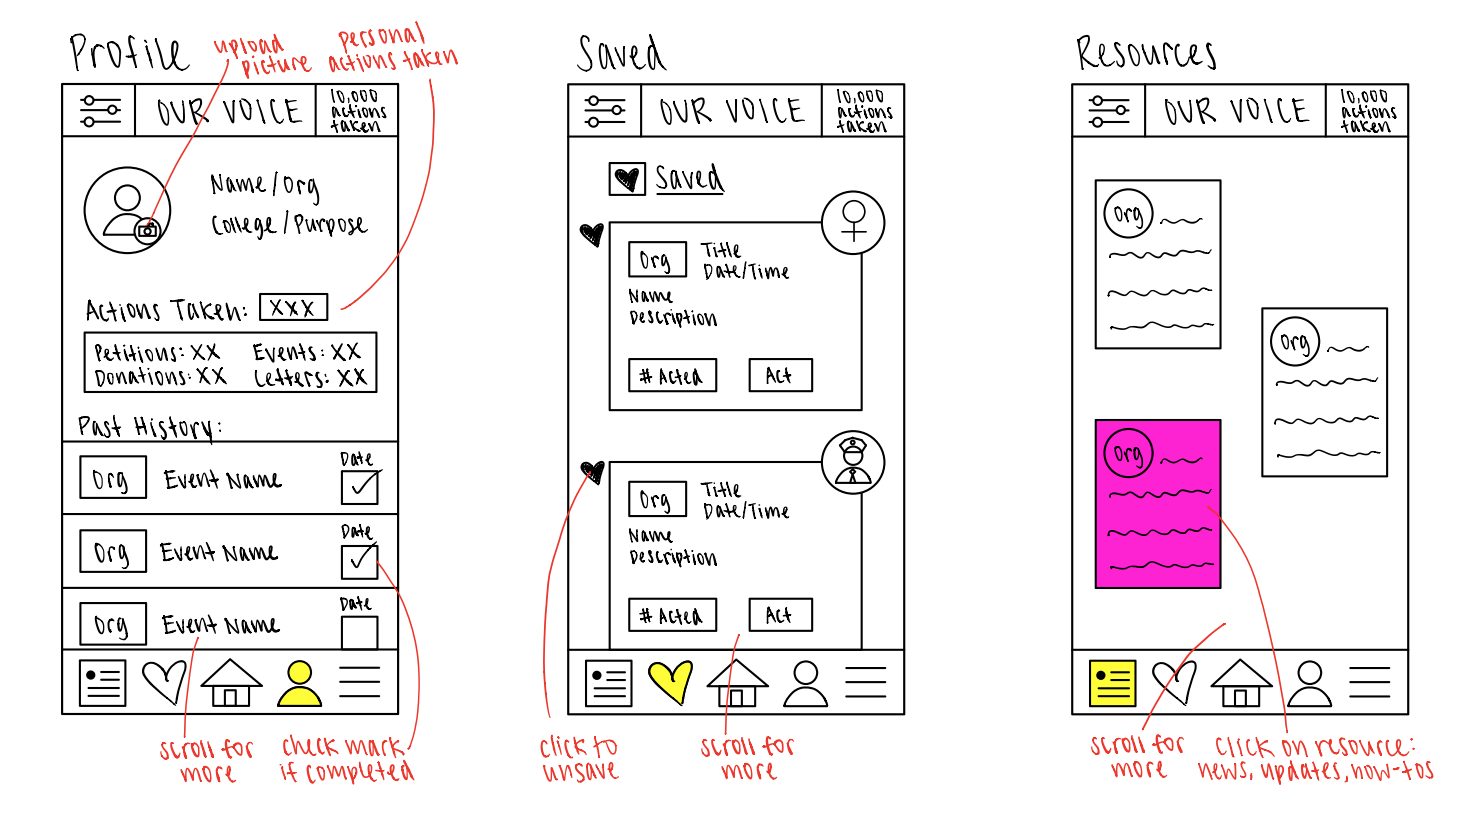 Profile
upload
picture
personal
actions taken
OUR VOICE
10,000
actions
taken
Name/Org
College/Purpose
Actions Taken: XXX
Petitions: XX Events: XX
Donations: XX Letters: XX
Past History:
Org Event Name Date
Org Event Name Date
Org Event Name Date
scroll for
more
check mark
if completed
Saved
OUR VOICE
10,000
actions
taken
Saved
Org
Title
Date/Time
Name
Description
# Acted Act
Org
Title
Date/Time
Name
Description
# Acted Act
click to
unsave
scroll for
more
Resources
OUR VOICE
10,000
actions
taken
Org
Org
Org
scroll for
more
click on resource:
news, updates, how-tos